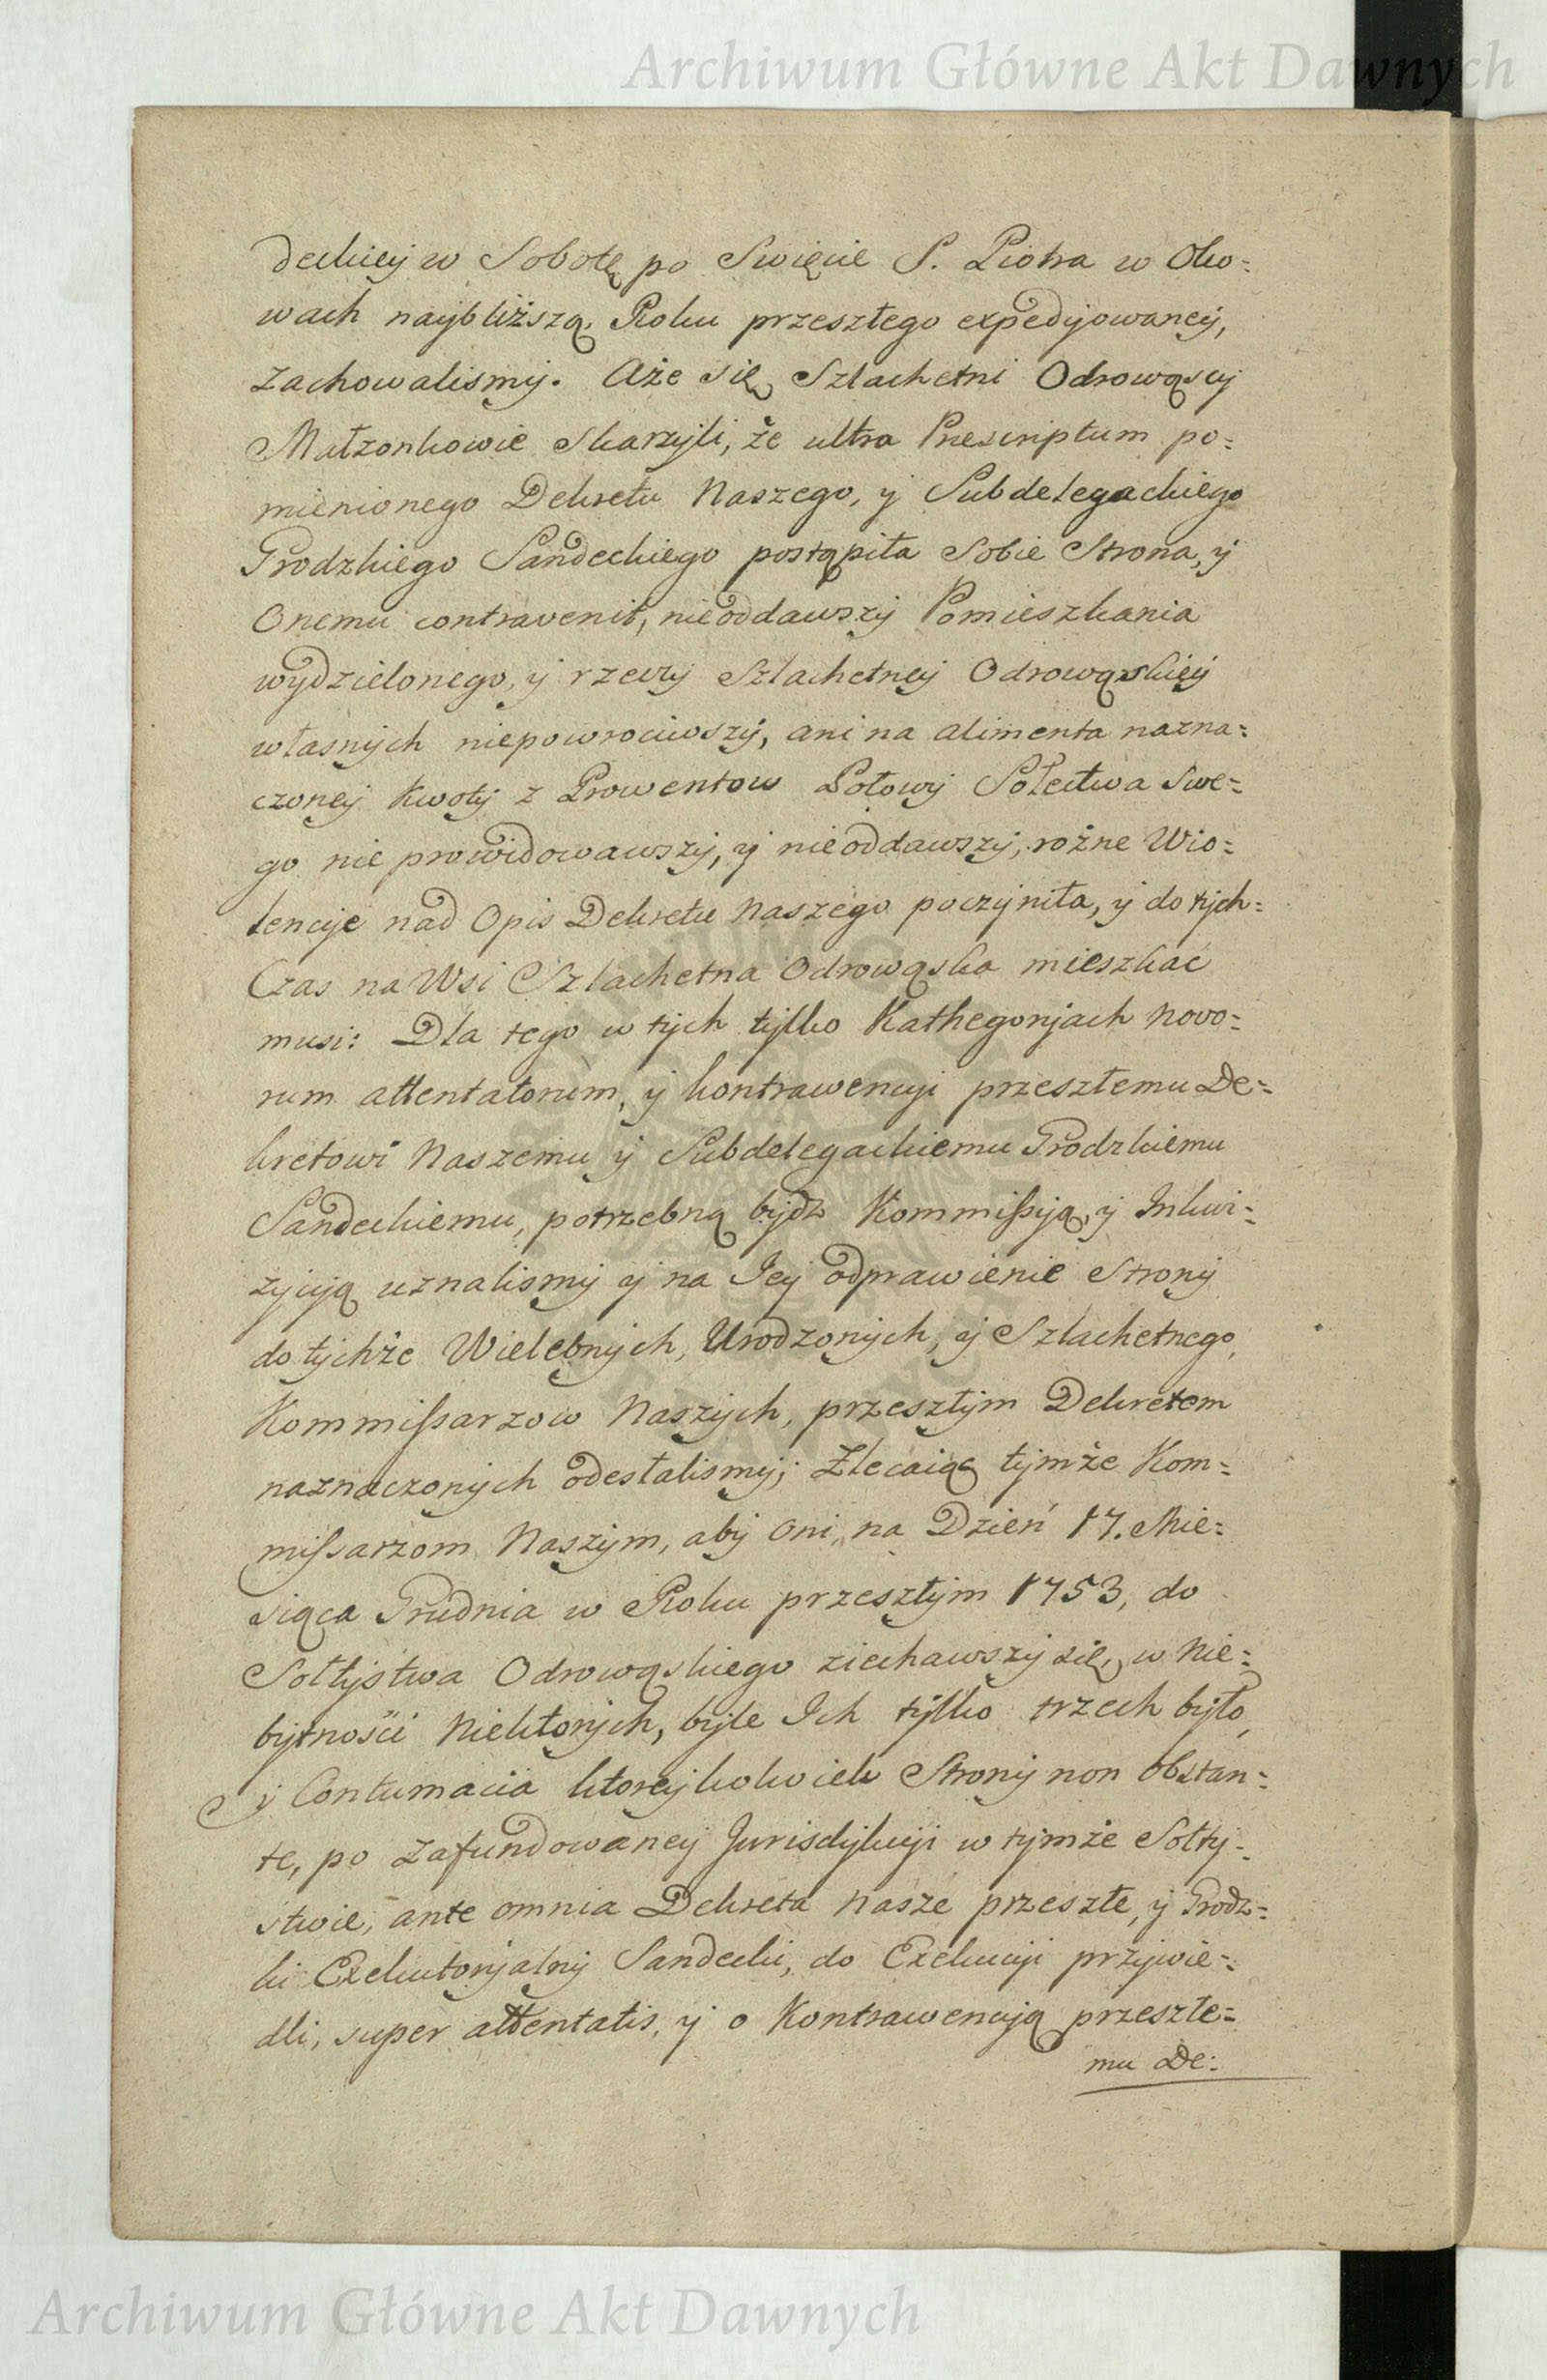 Archiwum Główne Akt Dawnych
deckiey w Sobotę po Swięcie S. Piotra w Oko=
wach naybliższą Roku przeszłego expedyowaney,
zachowalismy. Aże się Szlachetni Odrowąscy
Małżonkowie skarzyli, że ultra Prescriptum po=
mienionego Dekretu Naszego, y Subdelegackiego
Grodzkiego Sandeckiego postąpiła Sobie Strona, y
Onemu contravenit, nieoddawszy Pomieszkania
wydzielonego, y rzeczy Szlachetney Odrowąskiey
własnych niepowrociwszy, ani na alimenta nazna=
czoney kwoty z Prowentow Połowy Sołectwa Swe=
go nie prowidowawszy, y nieoddawszy, rożne Wio=
lencye nad Opis Dekretu Naszego poczyniła, y do tych=
Czas na Wsi Szlachetna Odrowąska mieszkać
musi: Dla tego w tych tylko Kathegoryach novo=
rum attentatorum, y kontrawencyi przeszłemu De=
kretowi Naszemu y Subdelegackiemu Grodzkiemu
Sandeckiemu, potrzebną bydz Kommißyą, y Inkwi=
zycyą uznalismy y na Jey odprawienie Strony
do tychże Wielebnych, Urodzonych, y Szlachetnego,
Kommißarzow Naszych, przeszłym Dekretem
naznaczonych odesłalismy; Zlecaiąc tymże Kom=
mißarzom Naszym, aby oni, na Dzień 17. Mie=
siąca Grudnia w Roku przeszłym 1753, do
Sołtystwa Odrowąskiego ziechawszy się, w Nie=
bytności Niektorych, byle Ich tylko trzech było,
y Contumacia ktoreykolwiek Strony non obstan=
te, po zafundowaney Jurisdykcyi w tymże Sołty=
stwie, ante omnia Dekreta Nasze przeszłe, y Grodz=
ki Exekutoryalny Sandecki, do Exekucyi przywie=
dli, super attentatis, y o Kontrawencyą przeszłe=
mu De:
Archiwum Główne Akt Dawnych